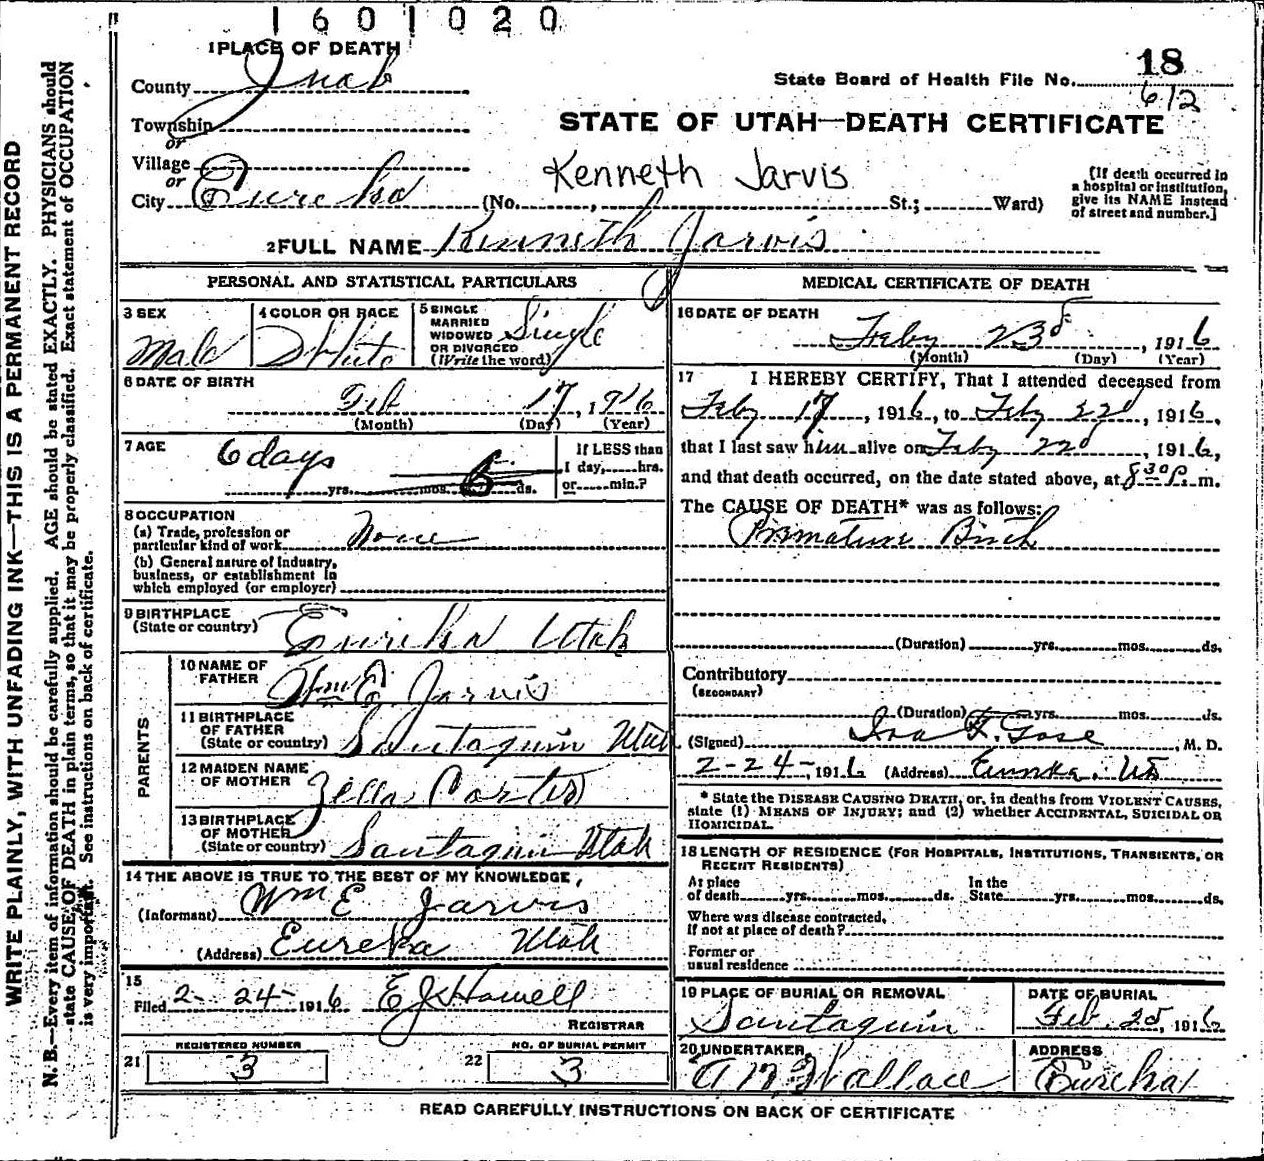 1601020
1 PLACE OF DEATH
County Juab
State Board of Health File No. 18
612
Township
or
STATE OF UTAH—DEATH CERTIFICATE
Village
or
Kenneth Jarvis
City Eureka (No. , St.; Ward)
[If death occurred in
a hospital or institution,
give its NAME instead
of street and number.]
2 FULL NAME Kenneth Jarvis
PERSONAL AND STATISTICAL PARTICULARS
3 SEX
Male
4 COLOR OR RACE
White
5 SINGLE
MARRIED
WIDOWED
OR DIVORCED
(Write the word)
Single
6 DATE OF BIRTH
Feb 17, 1916
(Month) (Day) (Year)
7 AGE
6 days
yrs. mos. 6 ds.
If LESS than
1 day, hrs.
or min.?
8 OCCUPATION
(a) Trade, profession or
particular kind of work None
(b) General nature of industry,
business, or establishment in
which employed (or employer)
9 BIRTHPLACE
(State or country) Eureka Utah
PARENTS
10 NAME OF
FATHER Wm E Jarvis
11 BIRTHPLACE
OF FATHER
(State or country) Santaquin Utah
12 MAIDEN NAME
OF MOTHER Zella Carter
13 BIRTHPLACE
OF MOTHER
(State or country) Santaquin Utah
14 THE ABOVE IS TRUE TO THE BEST OF MY KNOWLEDGE,
(Informant) Wm E Jarvis
(Address) Eureka Utah
15
Filed 2-24-1916 E J Howell
REGISTRAR
REGISTERED NUMBER
21 3
NO. OF BURIAL PERMIT
22 3
MEDICAL CERTIFICATE OF DEATH
16 DATE OF DEATH
Feby 23d, 1916
(Month) (Day) (Year)
17 I HEREBY CERTIFY, That I attended deceased from
Feby 17, 1916, to Feby 22d, 1916,
that I last saw him alive on Feby 22d, 1916,
and that death occurred, on the date stated above, at 8 30 P. m.
The CAUSE OF DEATH* was as follows:
Premature Birth
(Duration) yrs. mos. ds.
Contributory
(SECONDARY)
(Duration) yrs. mos. ds.
(Signed) M. D.
2-24-, 1916 (Address) Eureka, Ut
* State the DISEASE CAUSING DEATH, or, in deaths from VIOLENT CAUSES,
state (1) MEANS OF INJURY; and (2) whether ACCIDENTAL, SUICIDAL OR
HOMICIDAL.
18 LENGTH OF RESIDENCE (FOR HOSPITALS, INSTITUTIONS, TRANSIENTS, OR
RECENT RESIDENTS)
At place
of death yrs. mos. ds.
In the
State yrs. mos. ds.
Where was disease contracted,
If not at place of death?
Former or
usual residence
19 PLACE OF BURIAL OR REMOVAL
Santaquin
DATE OF BURIAL
Feb. 25, 1916
20 UNDERTAKER
A M Wallace
ADDRESS
Eureka
READ CAREFULLY INSTRUCTIONS ON BACK OF CERTIFICATE
WRITE PLAINLY, WITH UNFADING INK—THIS IS A PERMANENT RECORD
N. B.—Every item of information should be carefully supplied. AGE should be stated EXACTLY. PHYSICIANS should
state CAUSE OF DEATH in plain terms, so that it may be properly classified. Exact statement of OCCUPATION
is very important. See instructions on back of certificate.